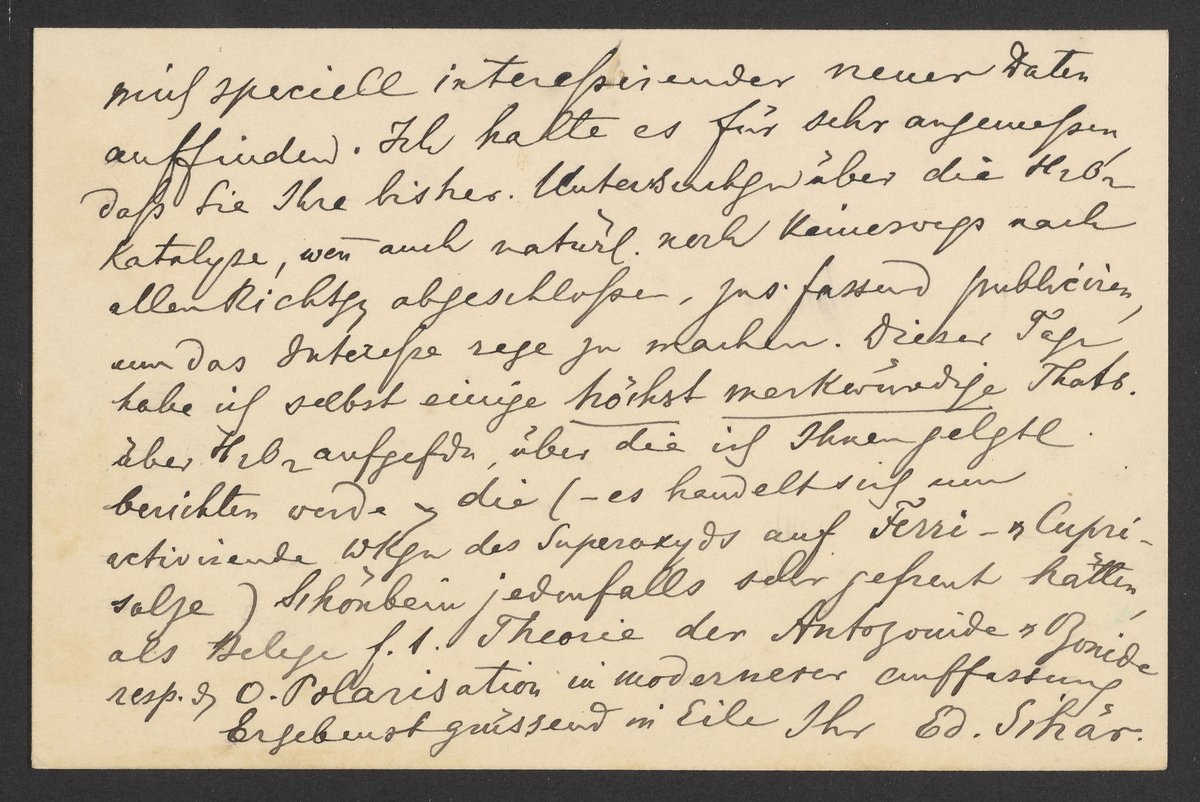 mich speciell interessirender neuer Daten
auffinden. Ich halte es für sehr angemessen,
daß Sie Ihre bisher. Untersuchgn über die H2O2
Katalyse, weñ auch natürl. noch keineswegs nach
allen Richtgn abgeschlossen, zus. fassend publiciren,
um das Interesse rege zu machen. Dieser Tage
habe ich selbst einige höchst merkwürdige Thats.
über H2O2 aufgefdn, über die ich Ihnen gelgtl
berichten werde & die (– es handelt sich um
activirende Wkgn des Superoxyds auf Ferri- & Cupri-
salze) Schönbein jedenfalls sehr gefreut hätten,
als Belege f. s. Theorie der Antozonide & Ozonide
resp. d. O. Polarisation in modernerer Auffassung
Ergebenst grüssend in Eile Ihr Ed. Schär.